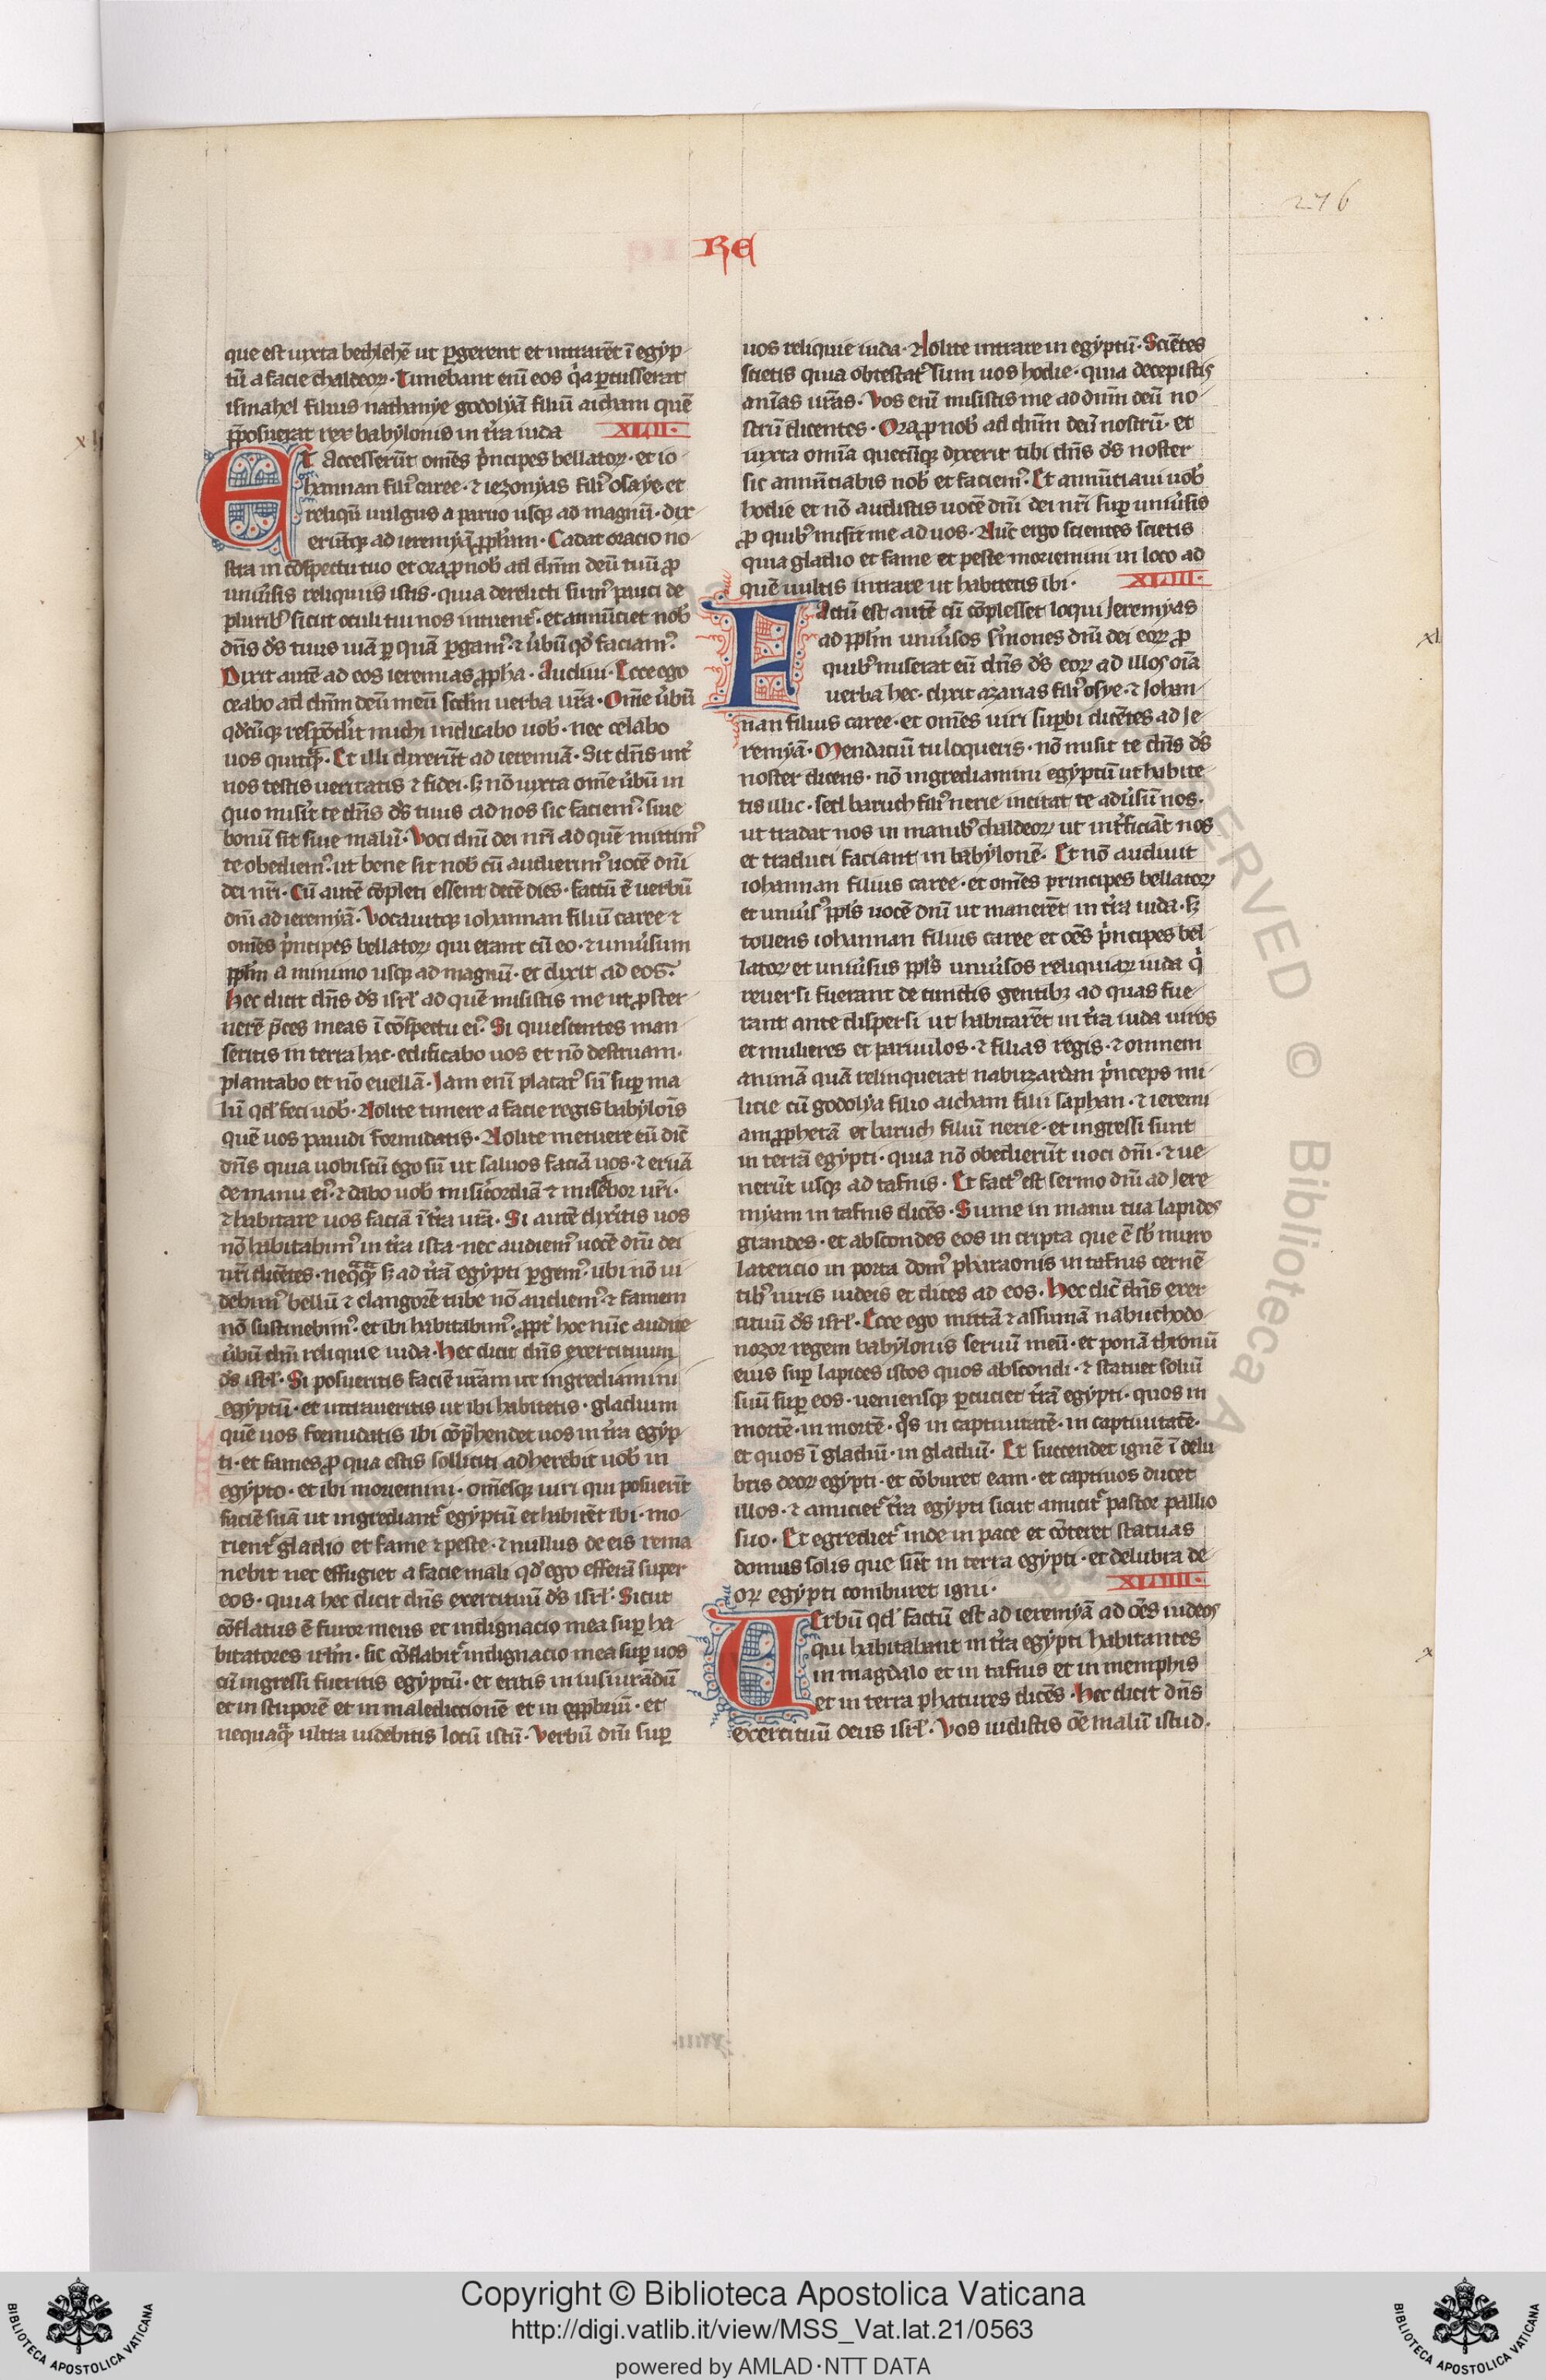 276
RE
que est iuxta bethlehē ut ꝑgerent et intrarēt ī egyp
tū a facie chaldeoꝝ · Timebant enī eos q̇a ꝑcusserat
ismahel filius nathanye godolyā filiū aicham quē
p̄posuerat rex babylonis in t̓ra iuda XLII ·
Et Accesserūt om̄es p̓ncipes bellatoꝝ · et io
hannan filiꝰ caree · ⁊ iezonyas filiꝰ osaye et
reliqū uulgus a paruo usqꝫ ad magnū · dix
erūtqꝫ ad ieremyā ꝓph̄am · Cadat oracio no
stra in cōspectu tuo et ora ꝓ nob̓ ad dn̄m deū tuū ꝓ
uniu̓sis reliquiis istis · quia derelicti sumꝰ pauci de
pluribꝰ sicut oculi tui nos intuent᷑ · et annūciet nob̓
dn̄s dꝰs tuus uiā ꝑ quā ꝑgamꝰ · ⁊ u̓bū qd̓ faciamꝰ
Dixit autē ad eos ieremias ꝓpha · Audiui · Ecce ego
orabo ad dn̄m deū meū scd̄m uerba ur̄a · Om̄e u̓bū
qd̓cūqꝫ respōd̓it michi indicabo uob̓ · nec celabo
uos quicq̄ꝫ · Et illi dixerūt ad ieremiā · Sit dn̄s int̓
nos testis ueritatis ⁊ fidei · sꝫ nō iuxta om̄e u̓bū in
quo misit te dn̄s dꝰs tuus ad nos sic faciemꝰ · siue
bonū sit siue malū · Voci dn̄i dei nr̄i ad quē mittimꝰ
te obediemꝰ · ut bene sit nob̓ cū audierimꝰ uocē dn̄i
dei nr̄i · Cū autē cōpleti essent decē dies · factū ē uerbū
dn̄i ad ieremyā · Vocauitqꝫ iohannan filiū caree ⁊
om̄es p̓ncipes bellatoꝝ qui erant cū eo · ⁊ uniu̓sum
pp̄lm a minimo usqꝫ ad magnū · et dixit ad eos ·
Hec dicit dn̄s dꝰs isr̄l ad quē misistis me ut ꝓster
nerē p̄ces meas ī cōspectu eiꝰ · Si quiescentes man
seritis in terra hac · edificabo uos et nō destruam ·
plantabo et nō euellā · Iam enī placatꝰ sū suꝑ ma
lū qd̓ feci uob̓ · Nolite timere a facie regis babylōis
quē uos pauidi formidatis · Nolite metuere eū dic̄
dn̄s quia uobiscū ego sū ut saluos faciā uos · ⁊ eruā
de manu eiꝰ · ⁊ dabo uob̓ mis̓icordiā ⁊ mis̓ebor ur̄i ·
⁊ habitare uos faciā ī t̓ra ur̄a · Si autē dix̓itis uos
nō habitabimꝰ in t̓ra ista · nec audiemꝰ uocē dn̄i dei
nr̄i dicētes · neq̄q̄ꝫ sꝫ ad t̓rā egypti ꝑgemꝰ · ubi nō ui
debimꝰ bellū ⁊ clangorē tube nō audiemꝰ · ⁊ famem
nō sustinebimꝰ · et ibi habitabimꝰ · ꝓpt̓ hoc nūc audite
u̓bū dn̄i reliquie iuda · Hec dicit dn̄s exercituum
dꝰs isr̄l · Si posueritis faciē ur̄am ut ingrediamini
egyptū · et intraueritis ut ibi habitetis · gladium
quē uos formidatis ibi cōp̄hendet uos in t̓ra egyp
ti · et fames ꝓ qua estis solliciti adherebit uob̓ in
egypto · et ibi moriemini · om̄esqꝫ uiri qui posuerūt
faciē suā ut ingrediant᷑ egyptū et habitēt ibi · mo
rient᷑ gladio et fame ⁊ peste · ⁊ nullus de eis rema
nebit nec effugiet a facie mali qd̓ ego efferā super
eos · quia hec dicit dn̄s exercituū dꝰs isr̄l · Sicut
cōflatus ē furor meus et indignacio mea suꝑ ha
bitatores irl̄m · sic cōflabit᷑ indignacio mea suꝑ uos
cū ingressi fueritis egyptū · et eritis in iusiurādū
et in stuporē et in malediccionē et in opp̄briū · et
nequaq̄ꝫ ultra uidebitis locū istū · Verbū dn̄i suꝑ
uos reliquie iuda · Nolite intrare in egyptū · Sciētes
scietis quia obtestat᷑ sum uos hodie · quia decepistis
anīas ur̄as · Vos enī misistis me ad dn̄m deū no
strū dicentes · Ora ꝓ nob̓ ad dn̄m deū nostrū · et
iuxta omīa quecūqꝫ dixerit tibi dn̄s dꝰs noster
sic annūtiabis nob̓ et faciemꝰ · Et annūtiaui uob̓
hodie et nō audistis uocē dn̄i dei nr̄i suꝑ uniu̓sis
ꝓ quibꝰ misit me ad uos · Nūc ergo scientes scietis
quia gladio et fame et peste moriemini in loco ad
quē uultis intrare ut habitetis ibi · XLIII ·
Factū est autē cū cōplesset loqui Jeremyas
ad pp̄lm uniu̓sos s̓mones dn̄i dei eoꝝ ꝓ
quibꝰ miserat eū dn̄s dꝰs eoꝝ ad illos oīa
uerba hec · dixit azarias filiꝰ osye · ⁊ Johan
nan filius caree · et om̄es uiri suꝑbi dicētes ad Je
remyā · Mendaciū tu loqueris · nō misit te dn̄s dꝰs
noster dicens · nō ingrediamini egyptū ut habite
tis illic · sed baruch filiꝰ nerie incitat te adu̓sū nos ·
ut tradat nos in manibꝰ chaldeoꝝ ut int̓ficiāt nos
et traduci faciant in babylonē · Et nō audiuit
iohannan filius caree · et om̄es principes bellatoꝝ
et uniu̓sꝰ pp̄ls uocē dn̄i ut manerēt in t̓ra iuda · sꝫ
tollens iohannan filius caree et oēs p̓ncipes bel
latoꝝ et uniu̓sus pp̄ls uniu̓sos reliquiaꝝ iuda q̇
reuersi fuerant de cunctis gentibꝫ ad quas fue
rant ante dispersi ut habitarēt in t̓ra iuda uiros
et mulieres et paruulos · ⁊ filias regis · ⁊ omnem
animā quā relinquerat nabuzardan p̓nceps mi
licie cū godolya filio aicham filii saphan · ⁊ ieremi
am ꝓphetā et baruch filiū nerie · et ingressi sunt
in terrā egypti · quia nō obedierūt uoci dn̄i · ⁊ ue
nerūt usqꝫ ad tafnis · Et factꝰ est sermo dn̄i ad Jere
myam in tafnis dicēs · Sume in manu tua lapides
grandes · et abscondes eos in cripta que ē sb̓ muro
latericio in porta domꝰ pharaonis in tafnis cernē
tibꝰ uiris iudeis et dices ad eos · Hec dic̄ dn̄s exer
cituū dꝰs isr̄l · Ecce ego mittā ⁊ assumā nabuchodo
nozor regem babylonis seruū meū · et ponā thronū
eius suꝑ lapides istos quos abscondi · ⁊ statuet soliū
suū suꝑ eos · ueniensqꝫ ꝑcuciet t̓rā egypti · quos in
mortē · in mortē · q̊s in captiuitatē · in captiuitatē ·
et quos ī gladiū · in gladiū · Et succendet ignē ī delu
bris deoꝝ egypti · et cōburet eam · et captiuos ducet
illos · ⁊ amiciet᷑ t̓ra egypti sicut amicit᷑ pastor pallio
suo · Et egrediet᷑ inde in pace et cōteret statuas
domus solis que sūt in terra egypti · et delubra de
oꝝ egypti comburet igni · XLIIII ·
Verbū qd̓ factū est ad ieremyā ad oēs iudeos
qui habitabant in t̓ra egypti habitantes
in magdalo et in tafnis et in memphis
et in terra phatures dicēs · Hec dicit dn̄s
exercituū deus isr̄l · Vos uidistis oē malū istud ·
Copyright © Biblioteca Apostolica Vaticana
http://digi.vatlib.it/view/MSS_Vat.lat.21/0563
powered by AMLAD·NTT DATA